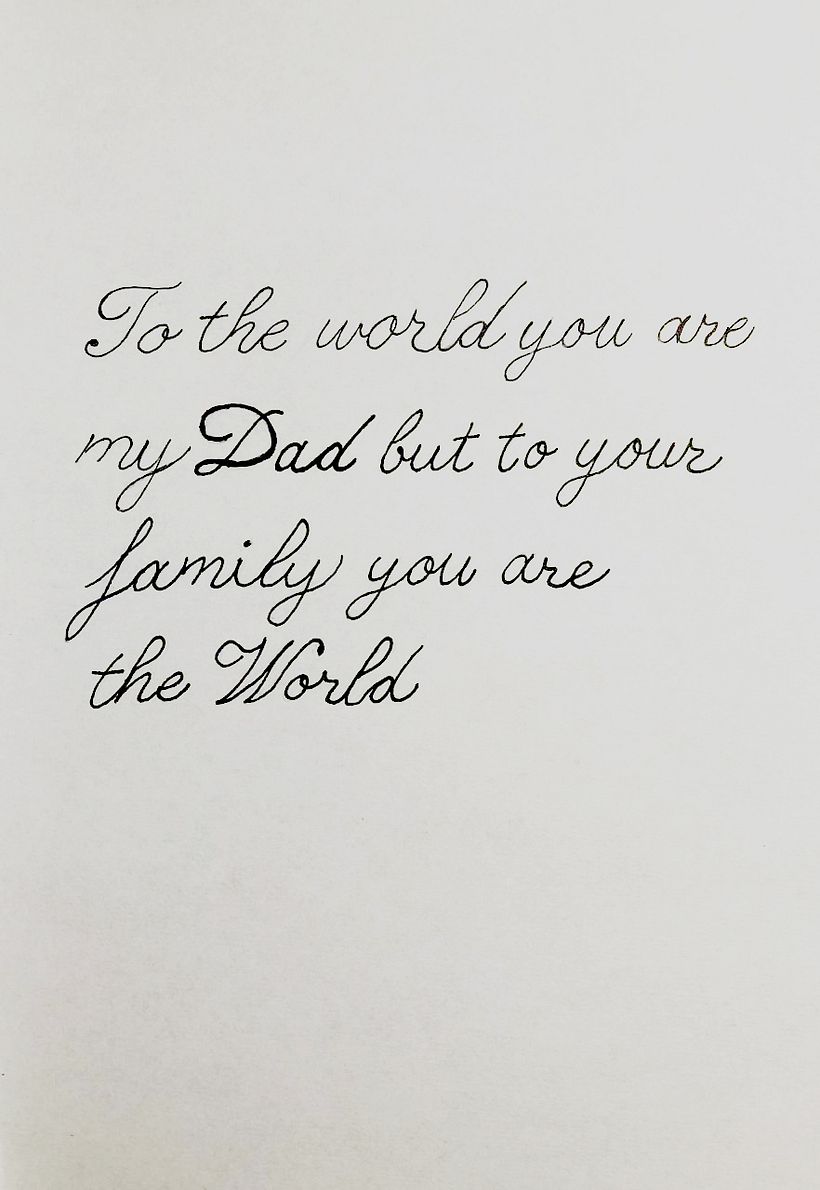 To the world you are
my Dad but to your
family you are
the World